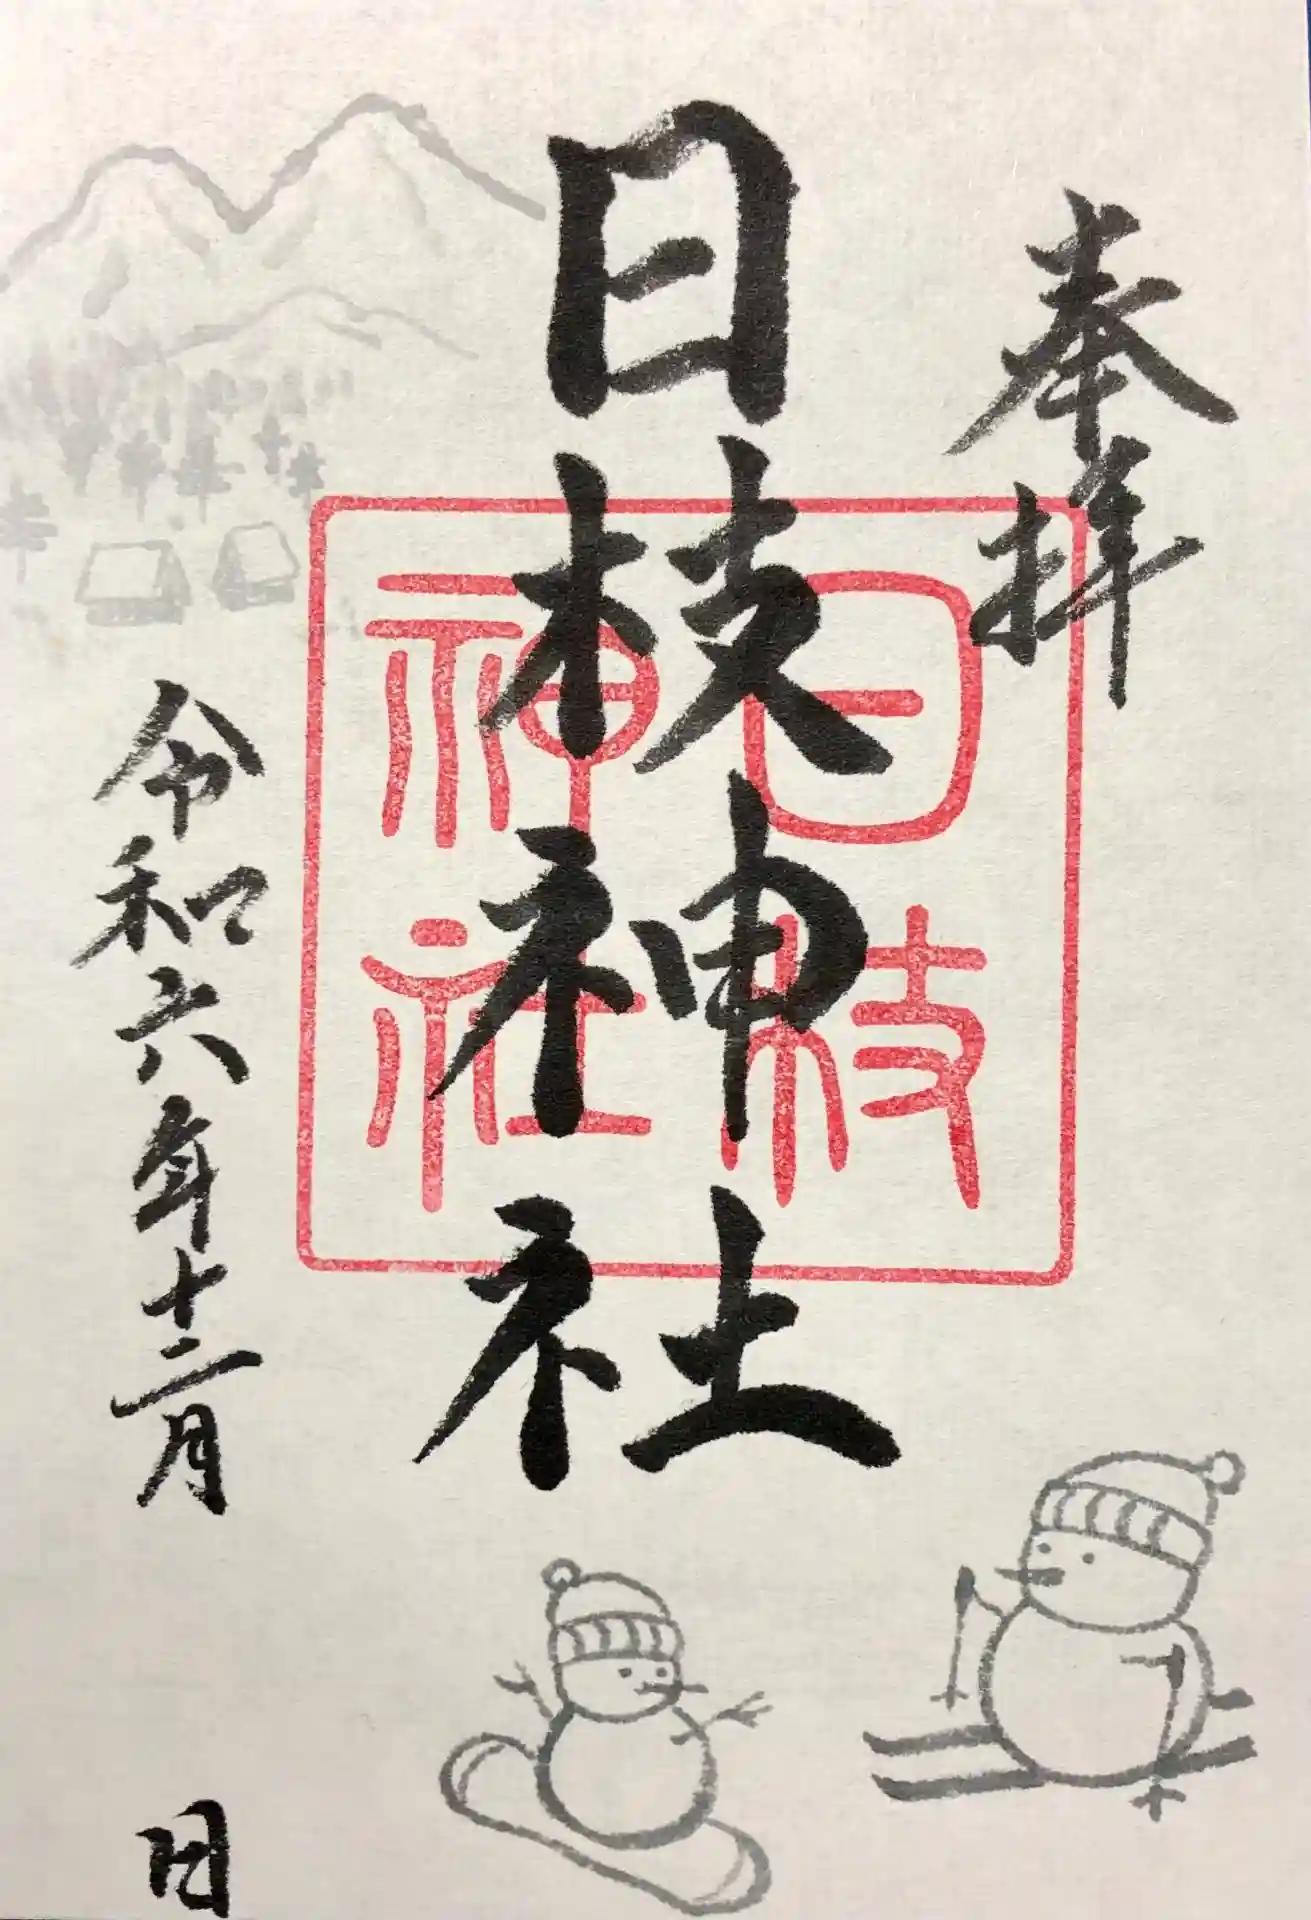 奉拝
日枝神社
日枝
神社
令和六年十二月 日